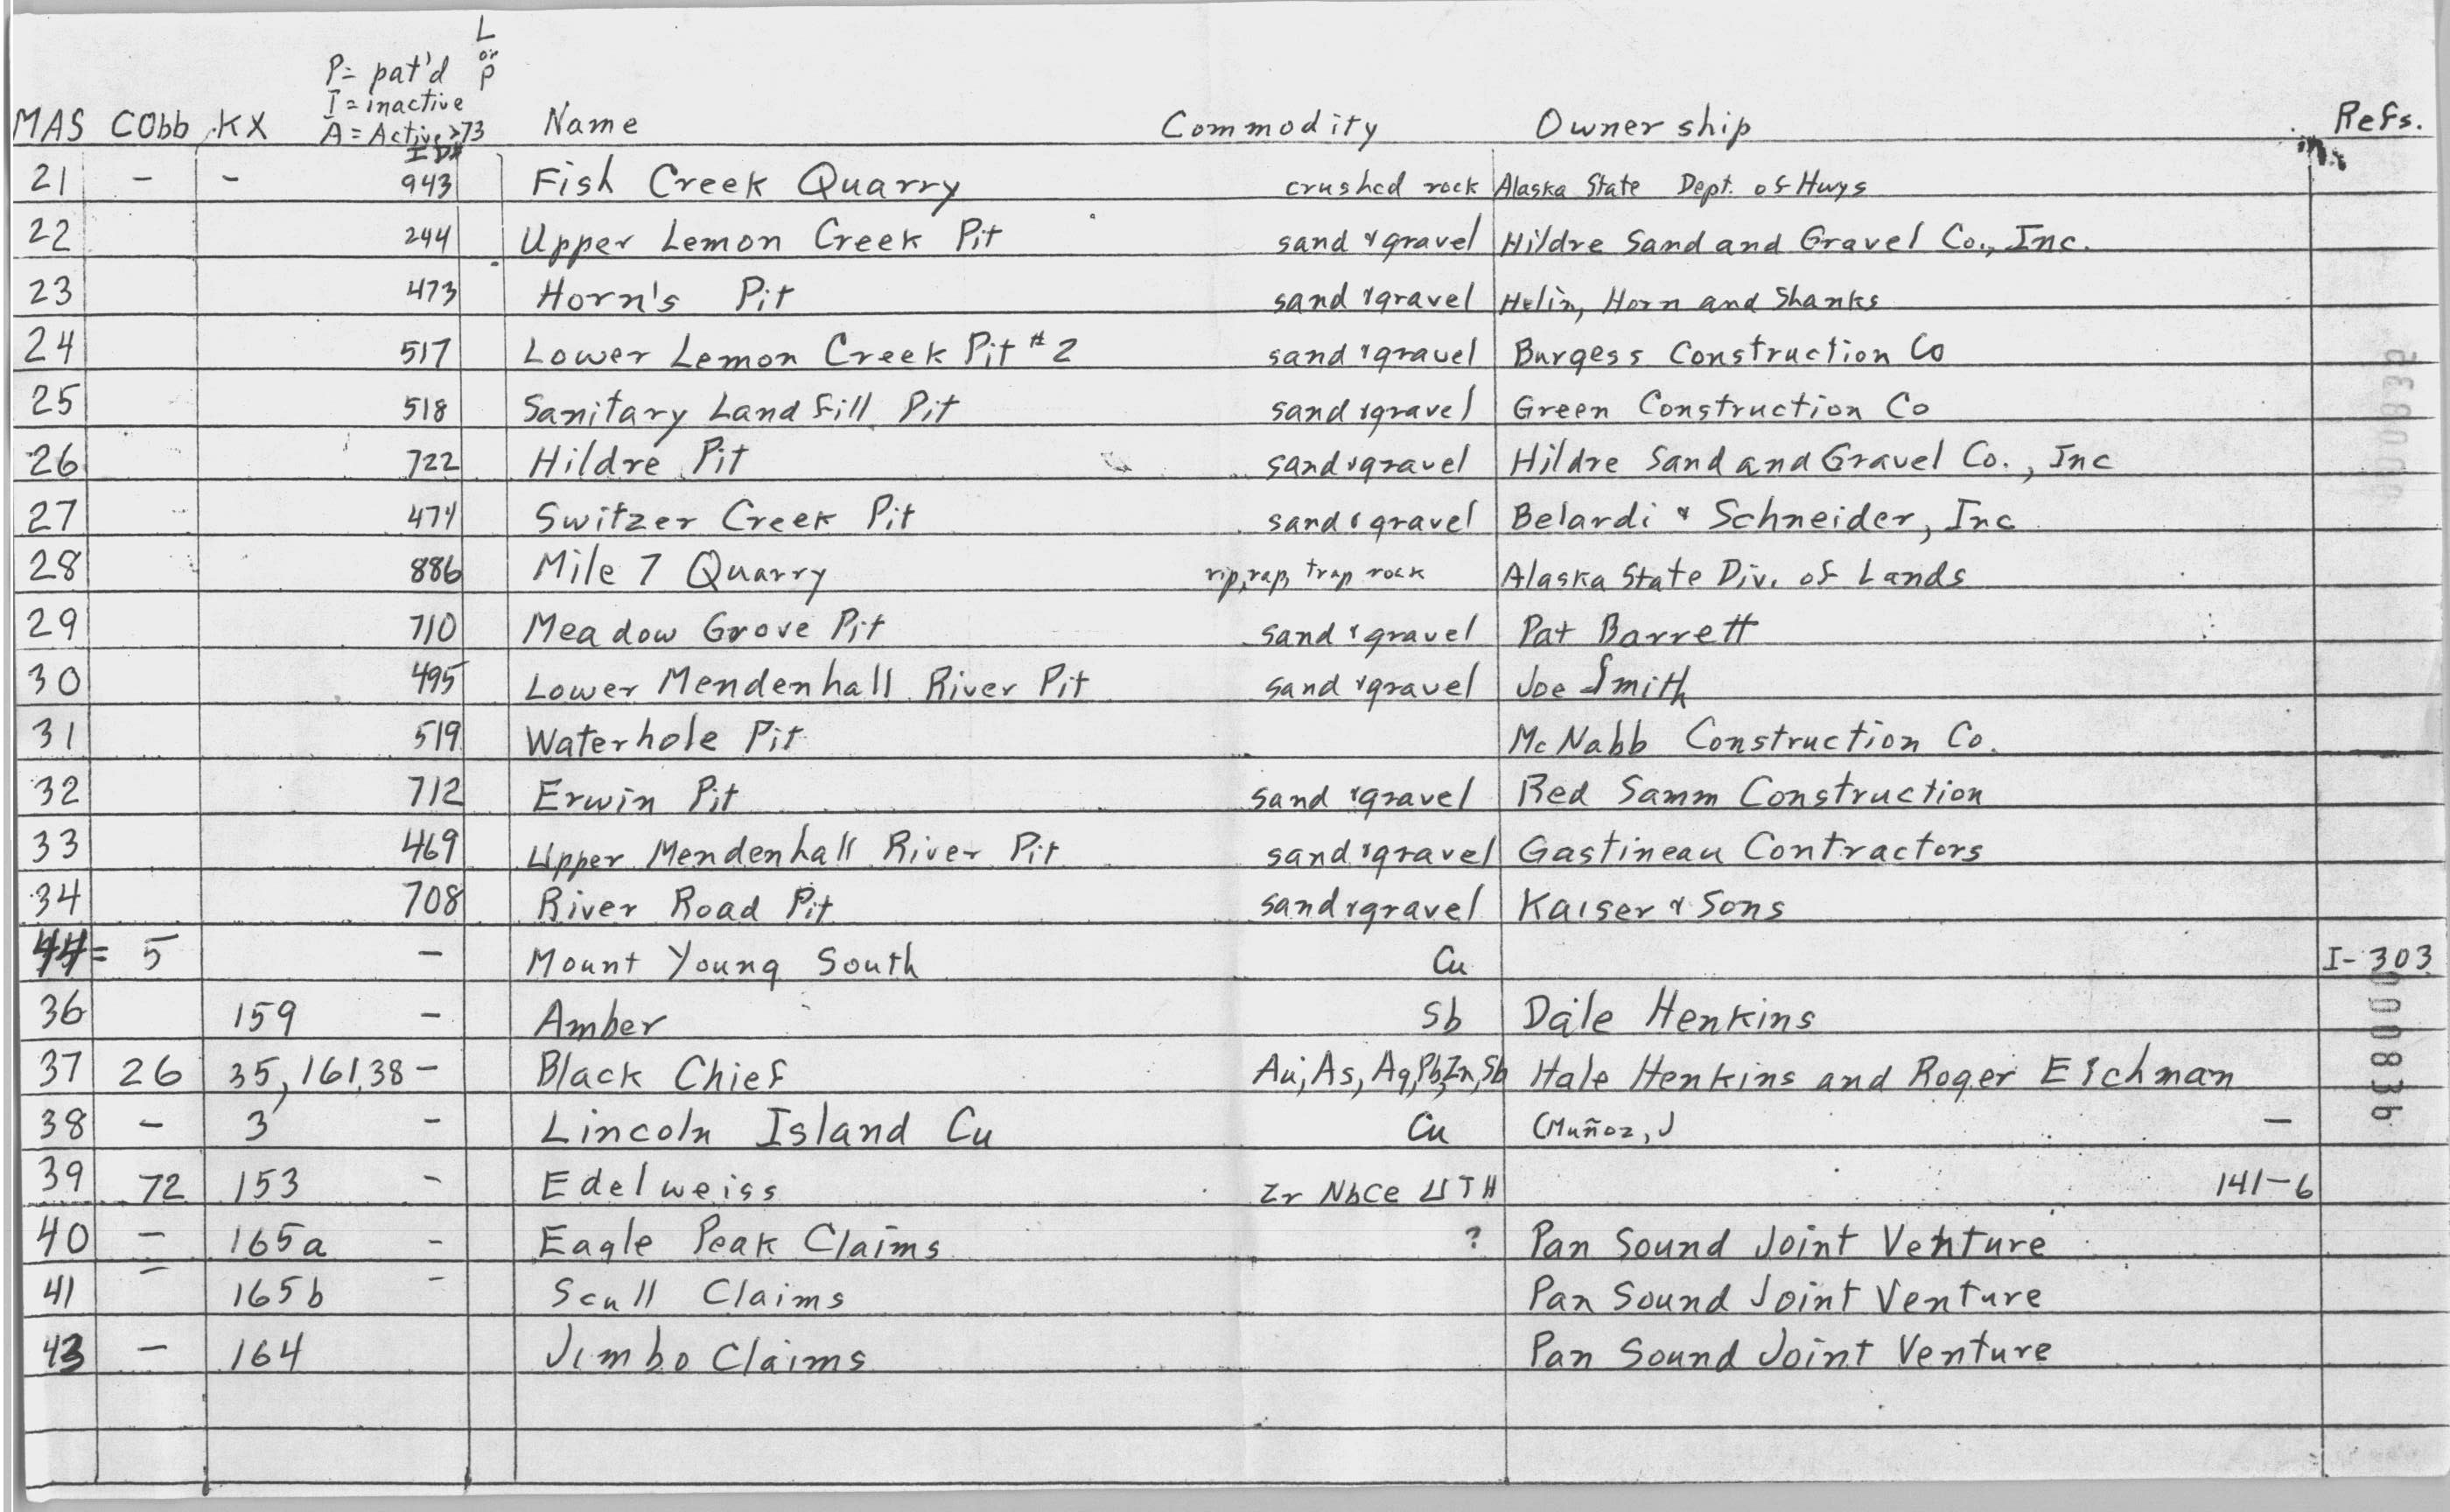 L
or
P
P= pat'd
I = inactive
MAS Cobb KX A = Active >73 Name Commodity Ownership Refs.
ID#
21 - - 943 Fish Creek Quarry crushed rock Alaska State Dept. of Hwys
22 244 Upper Lemon Creek Pit sand & gravel Hildre Sand and Gravel Co., Inc.
23 473 Horn's Pit sand & gravel Helin, Horn and Shanks
24 517 Lower Lemon Creek Pit #2 sand & gravel Burgess Construction Co
25 518 Sanitary Land Fill Pit sand & gravel Green Construction Co
26 722 Hildre Pit sand & gravel Hildre Sand and Gravel Co., Inc
27 474 Switzer Creek Pit sand & gravel Belardi & Schneider, Inc
28 886 Mile 7 Quarry rip, rap, trap rock Alaska State Div. of Lands
29 710 Meadow Grove Pit sand & gravel Pat Barrett
30 495 Lower Mendenhall River Pit sand & gravel Joe Smith
31 519 Waterhole Pit McNabb Construction Co.
32 712 Erwin Pit sand & gravel Red Samm Construction
33 469 Upper Mendenhall River Pit sand & gravel Gastineau Contractors
34 708 River Road Pit sand & gravel Kaiser & Sons
44 = 5 - Mount Young South Cu I-303
36 159 - Amber Sb Dale Henkins
37 26 35, 161, 38 - Black Chief Au, As, Ag, Pb, Zn, Sb Hale Henkins and Roger Eichman
38 - 3 - Lincoln Island Cu Cu (Muñoz, J -
39 72 153 - Edelweiss Zr Nb Ce U TH 141-6
40 - 165a - Eagle Peak Claims ? Pan Sound Joint Venture
41 - 165b - Scull Claims Pan Sound Joint Venture
43 - 164 Jimbo Claims Pan Sound Joint Venture
000835
000836